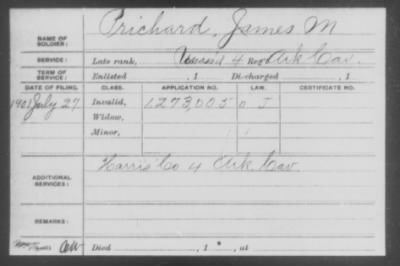 NAME OF SOLDIER: Prichard, James M
SERVICE: Late rank, 4 Reg't Ark Cav.
TERM OF SERVICE: Enlisted , 1 Discharged , 1
DATE OF FILING. CLASS. APPLICATION NO. LAW. CERTIFICATE NO.
1901 July 27 Invalid, 1273,005 J
Widow,
Minor,
ADDITIONAL SERVICES: Harris Co 4 Ark. Cav.
REMARKS:
Died , 1 , at